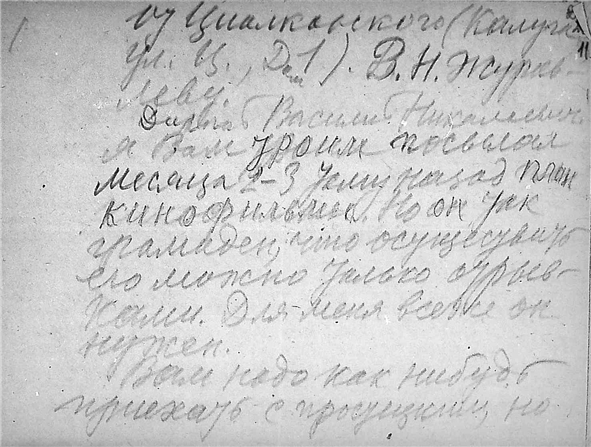 От Циолковского (Калуга
ул. Ц., Дом 1). В. Н. Журав-
леву.
Василий Николаевич
я Вам посылал
месяца 2–3 тому назад план
кинофильма. Но он так
громаден, что осуществить
его можно только отрыв-
ками. Для меня все же он
нужен.
Вам надо как нибудь
приехать с но